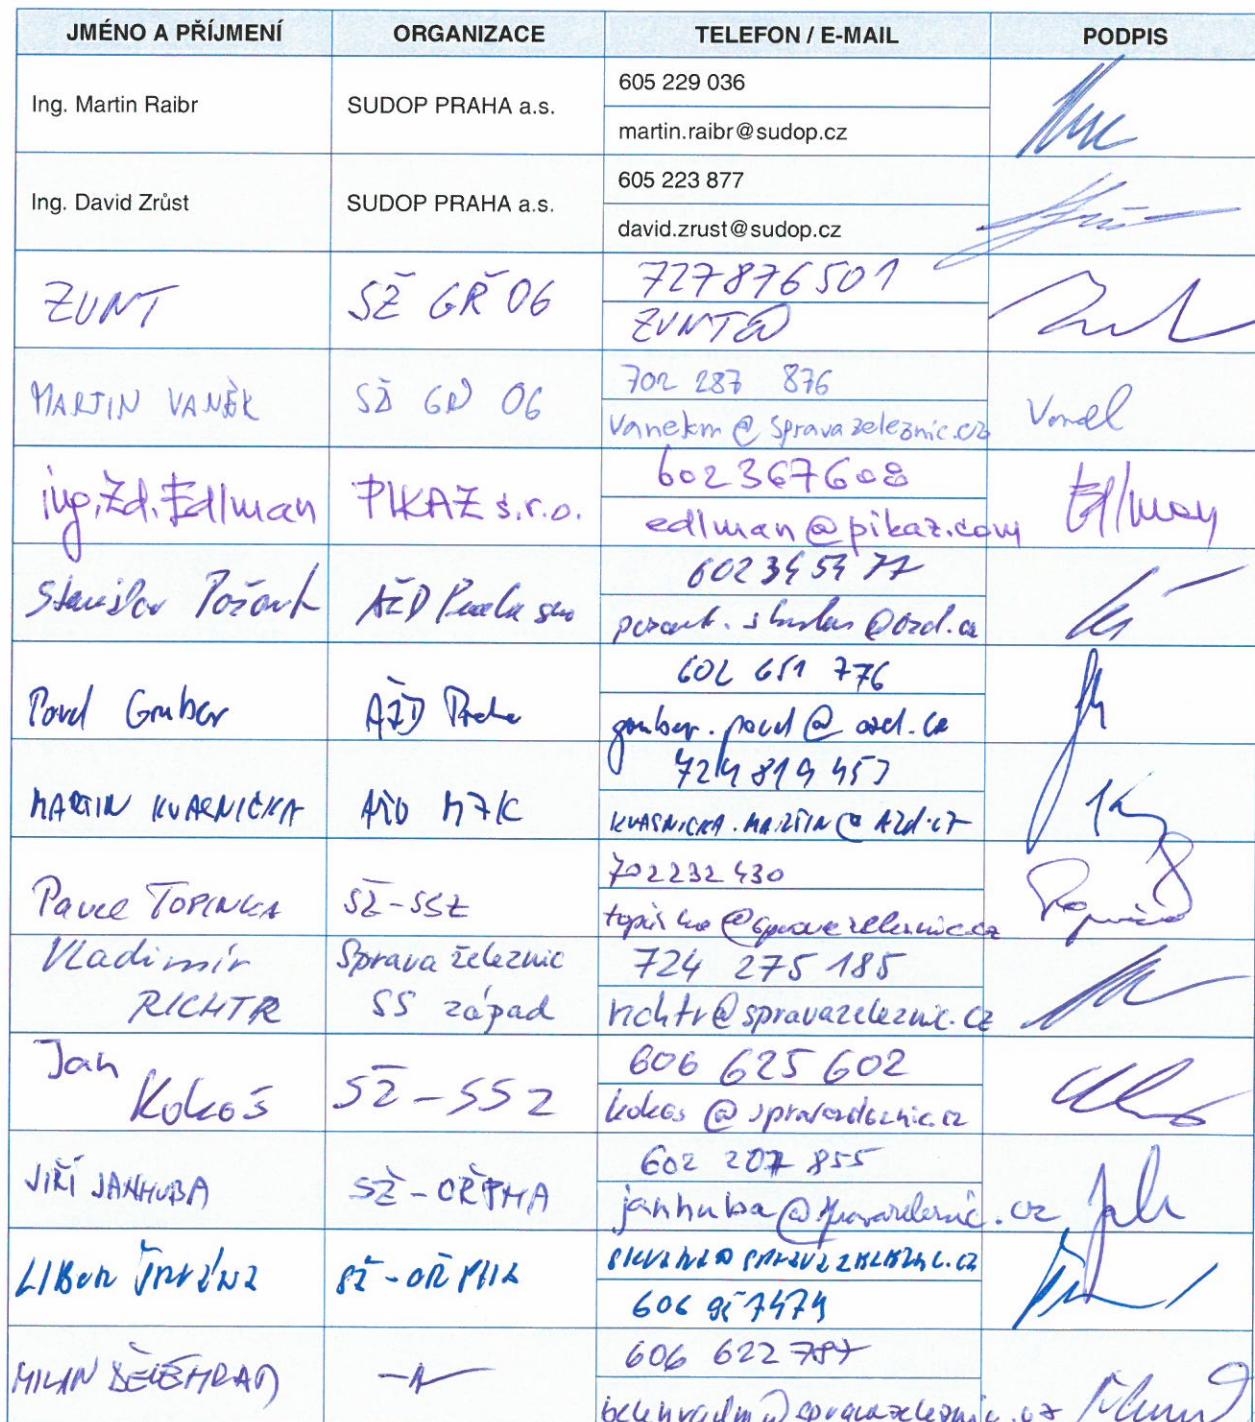 JMÉNO A PŘÍJMENÍ ORGANIZACE TELEFON / E-MAIL PODPIS
Ing. Martin Raibr SUDOP PRAHA a.s. 605 229 036
martin.raibr@sudop.cz
Ing. David Zrůst SUDOP PRAHA a.s. 605 223 877
david.zrust@sudop.cz
ZUNT SŽ GŘ 06 727876501
ZUNT@
MARTIN VANĚK SŽ GŘ 06 702 287 876
vanekm@spravazeleznic.cz
ing. Zd. Edlman PIKAZ s.r.o. 602367608
edlman@pikaz.com Edlman
Stanislav AŽD Praha 602345477
Pavel Gruber AŽD Praha 602 651 776
gruber.pavel@azd.cz
MARTIN KVASNIČKA AŽD 724 819 457
KVASNICKA.MARTIN@AZD.CZ
Pavel TOPINKA SŽ-SSZ 702232430
topinka@spravazeleznic.cz
Vladimír Správa železnic 724 275 185
RICHTR SS západ richtr@spravazeleznic.cz
Jan 606 625 602
Kokoš SŽ-SSZ kokos@spravazeleznic.cz
JIŘÍ JANHUBA SŽ-OŘ PHA 602 207 855
janhuba@spravazeleznic.cz
LIBOR SŽ-OŘ PHA
MILAN BĚLEHRAD 606 622 787
belehradm@spravazeleznic.cz